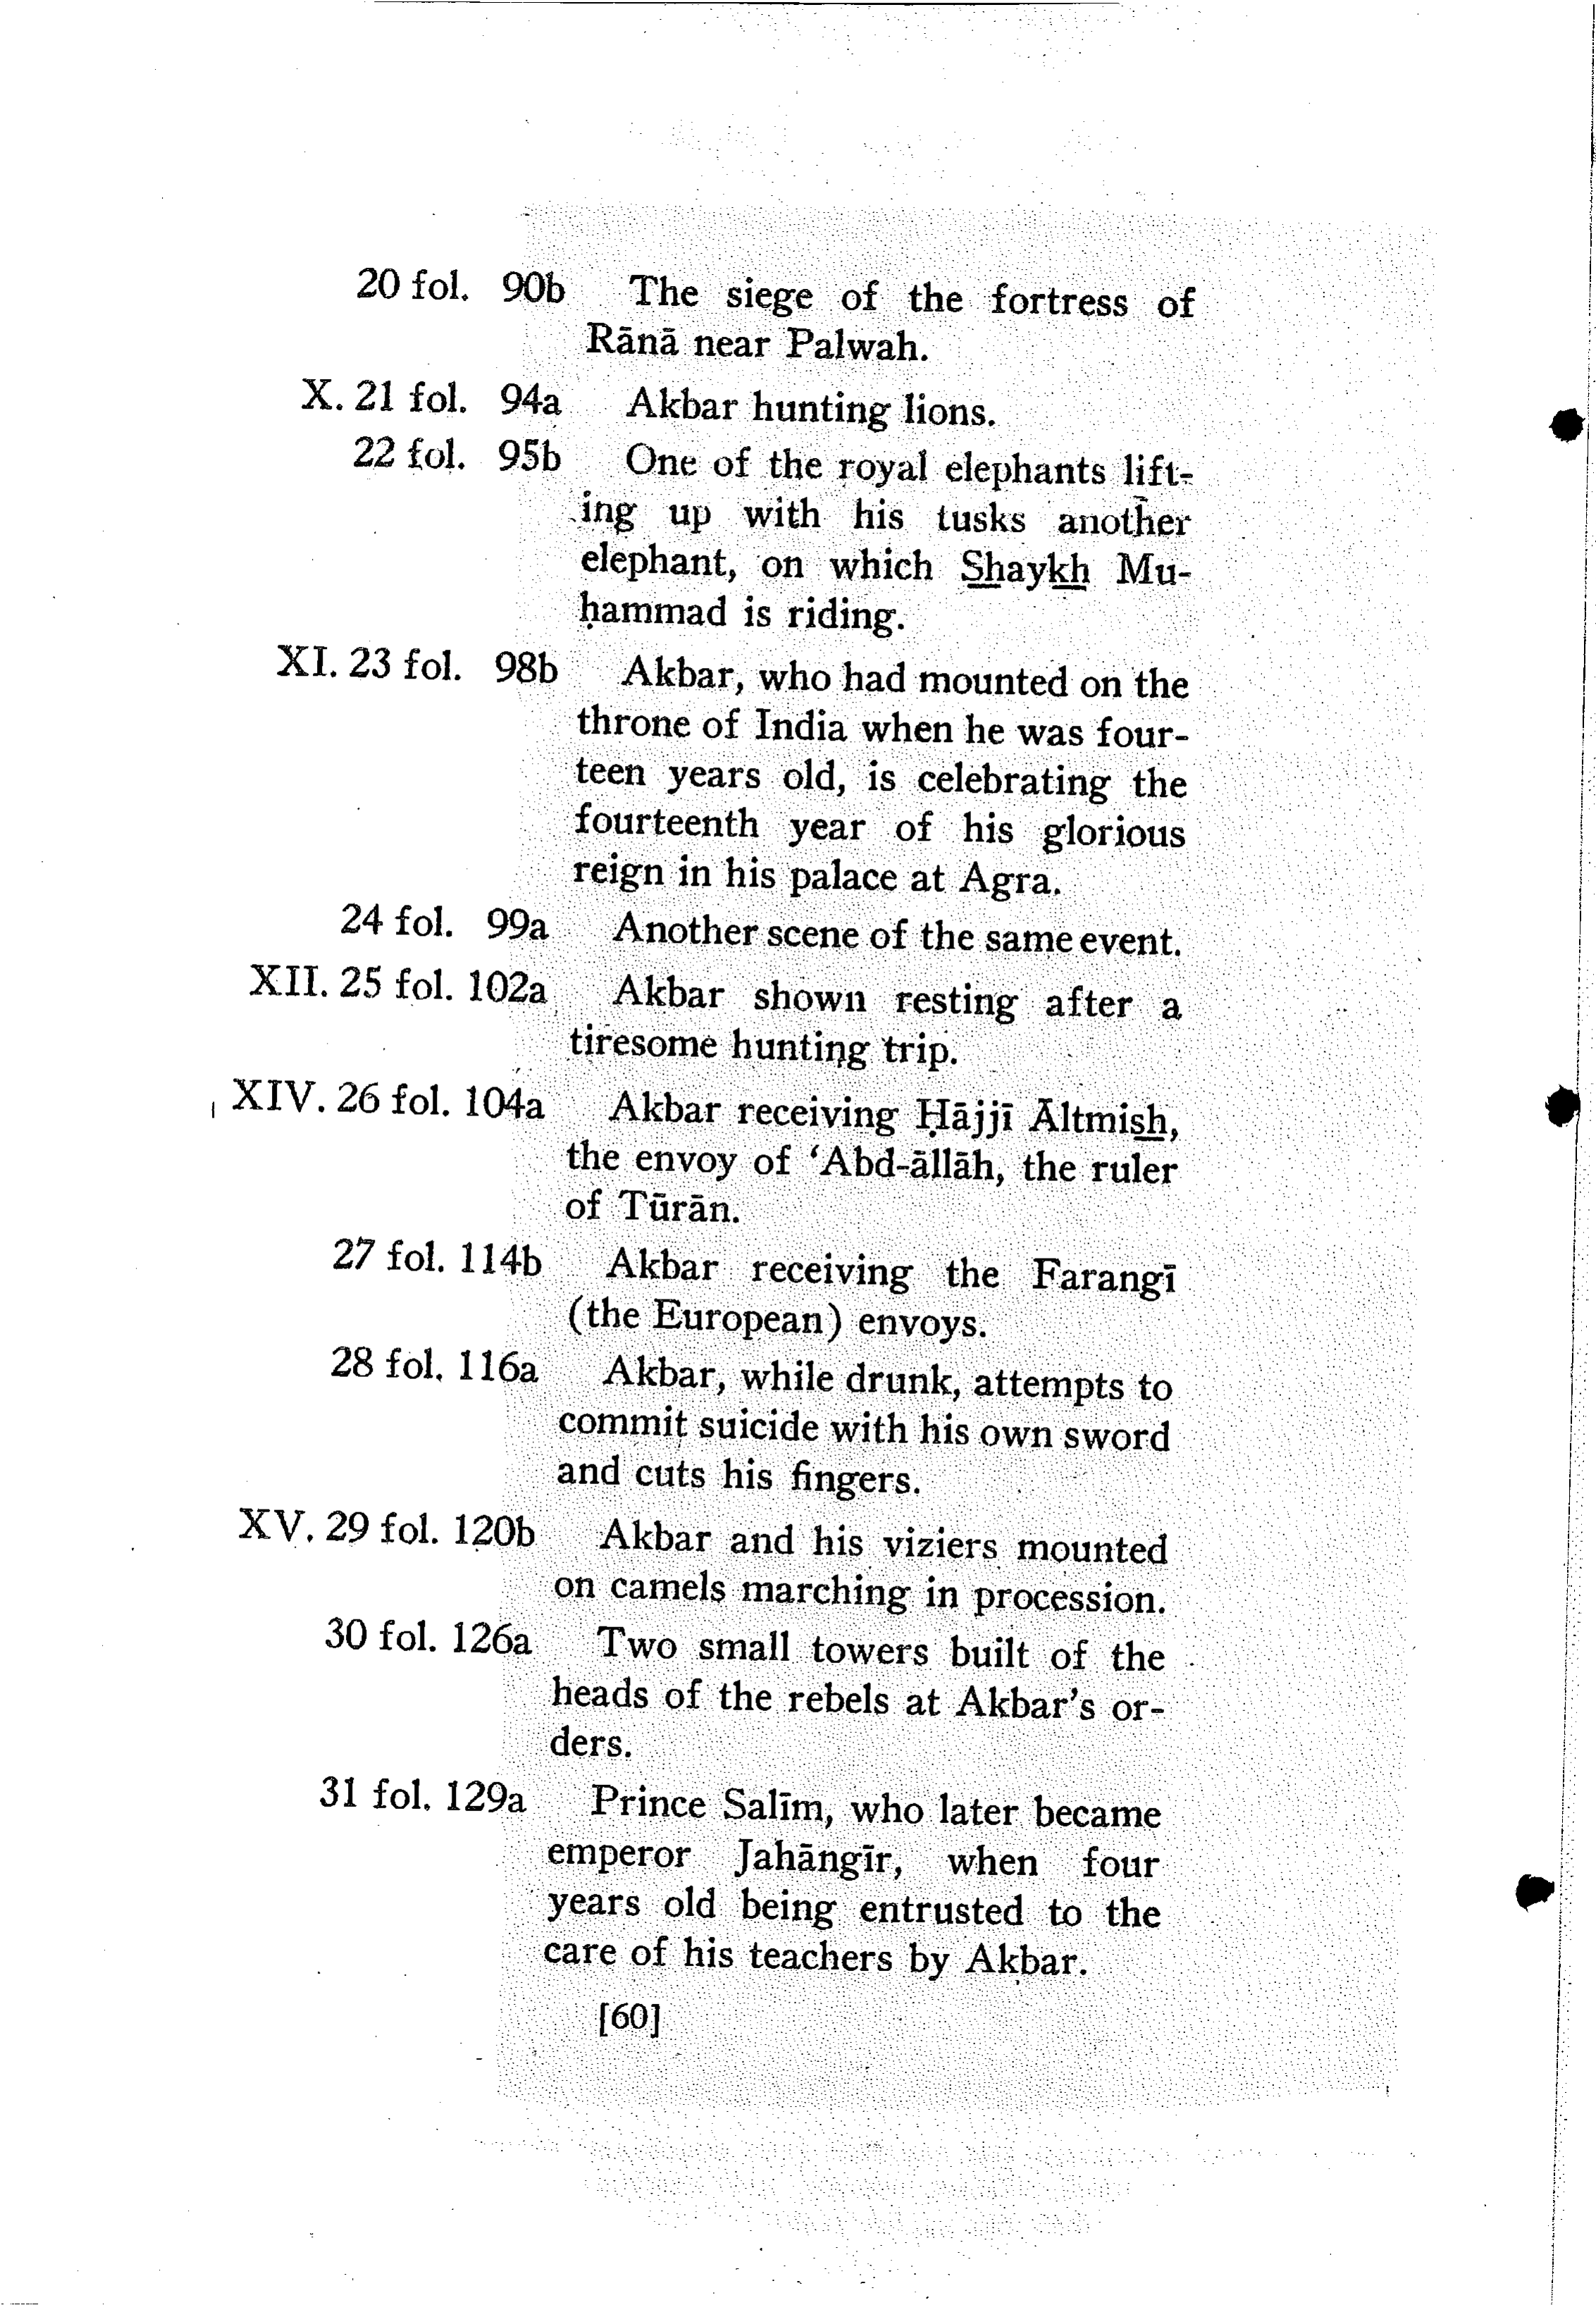 20 fol. 90b The siege of the fortress of
Rānā near Palwah.
X. 21 fol. 94a Akbar hunting lions.
22 fol. 95b One of the royal elephants lift-
ing up with his tusks another
elephant, on which Shaykh Mu-
ḥammad is riding.
XI. 23 fol. 98b Akbar, who had mounted on the
throne of India when he was four-
teen years old, is celebrating the
fourteenth year of his glorious
reign in his palace at Agra.
24 fol. 99a Another scene of the same event.
XII. 25 fol. 102a Akbar shown resting after a
tiresome hunting trip.
XIV. 26 fol. 104a Akbar receiving Ḥājjī Āltmish,
the envoy of ‘Abd-āllāh, the ruler
of Tūrān.
27 fol. 114b Akbar receiving the Farangī
(the European) envoys.
28 fol. 116a Akbar, while drunk, attempts to
commit suicide with his own sword
and cuts his fingers.
XV. 29 fol. 120b Akbar and his viziers mounted
on camels marching in procession.
30 fol. 126a Two small towers built of the
heads of the rebels at Akbar's or-
ders.
31 fol. 129a Prince Salīm, who later became
emperor Jahāngīr, when four
years old being entrusted to the
care of his teachers by Akbar.
[60]